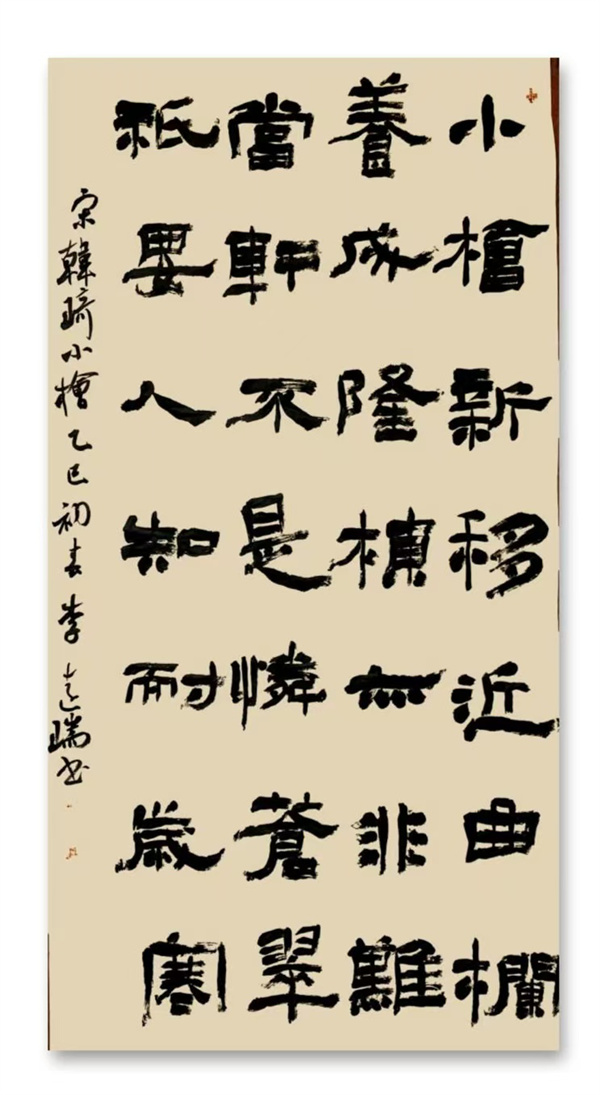 小檜新移近曲欄
養成隆楨無非難
當軒不是憐蒼翠
祇要人知耐歲寒
宋韓琦小檜乙巳初春李志瑞书